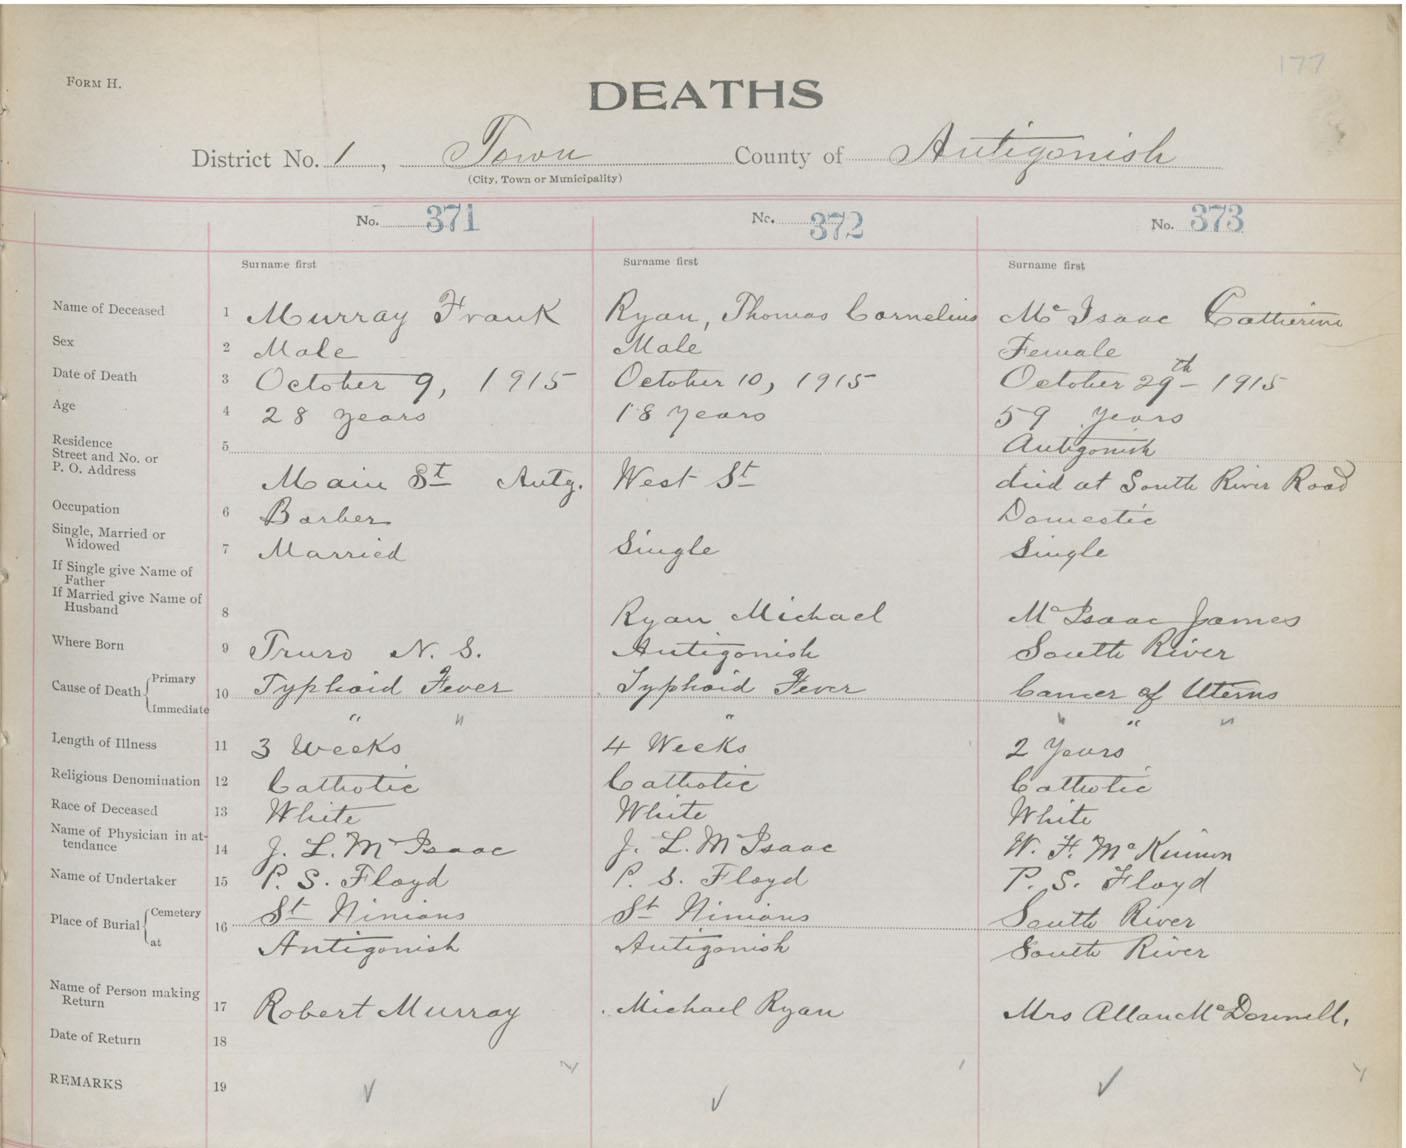 177
FORM H.
DEATHS
District No. 1, Town County of Antigonish
(City, Town or Municipality)
No. 371 No. 372 No. 373
Surname first Surname first Surname first
Name of Deceased 1 Murray Frank Ryan, Thomas Cornelius Mc Isaac Catherine
Sex 2 Male Male Female
Date of Death 3 October 9, 1915 October 10, 1915 October 29th 1915
Age 4 28 years 18 years 59 years
Residence 5 Antigonish
Street and No. or
P. O. Address Main St Antg. West St died at South River Road
Occupation 6 Barber Domestic
Single, Married or
Widowed 7 Married Single Single
If Single give Name of
Father
If Married give Name of
Husband 8 Ryan Michael Mc Isaac James
Where Born 9 Truro N. S. Antigonish South River
Cause of Death { Primary 10 Typhoid Fever Typhoid Fever Cancer of Uterus
Immediate " " " " " "
Length of Illness 11 3 Weeks 4 Weeks 2 Years
Religious Denomination 12 Catholic Catholic Catholic
Race of Deceased 13 White White White
Name of Physician in at-
tendance 14 J. L. Mc Isaac J. L. Mc Isaac W. F. Mc Kinnon
Name of Undertaker 15 P. S. Floyd P. S. Floyd P. S. Floyd
Place of Burial { Cemetery 16 St Ninians St Ninians South River
at Antigonish Antigonish South River
Name of Person making
Return 17 Robert Murray Michael Ryan Mrs Allan Mc Donnell,
Date of Return 18
REMARKS 19